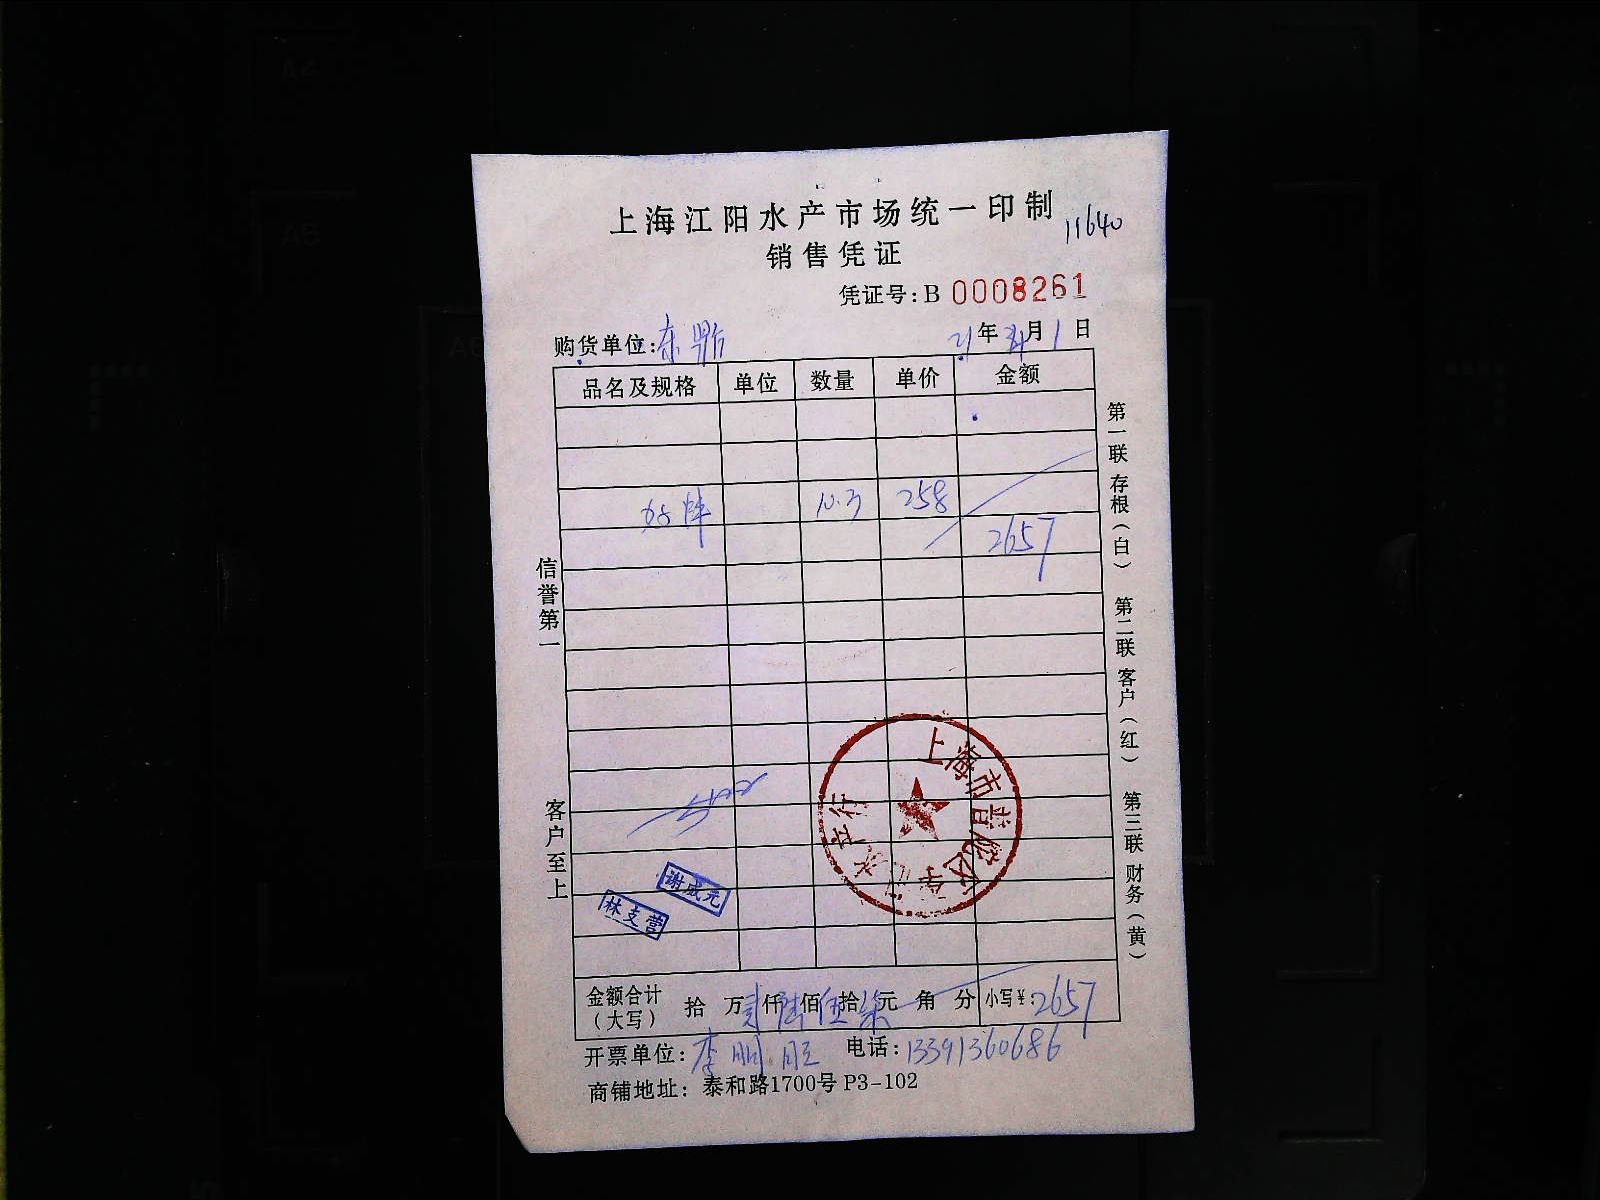 上海江阳水产市场统一印制
11640
销售凭证
凭证号：B 0008261
购货单位：东鼎 21年 月1日
品名及规格 单位 数量 单价 金额
10.3 258
2657
谢成元
林支营
上海市普陀区 水立行
金额合计（大写） 拾 万贰仟陆佰伍拾柒元 角 分 小写¥：2657
开票单位：李明旺 电话：13391360686
商铺地址：泰和路1700号 P3-102
信誉第一 客户至上
第一联 存根（白） 第二联 客户（红） 第三联 财务（黄）